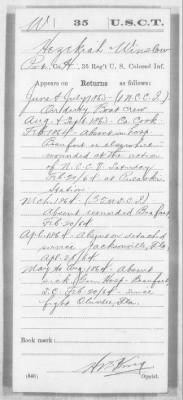 W 35 U.S.C.T.
Hezekiah Winslow
Pvt., Co. H, 35 Reg't U. S. Colored Inf.
Appears on Returns as follows:
June & July 186 (1 N.C.C.I.)
On duty Boat Crew
Aug. & Sept. 186 - Co. Cook
Feb. 1864 - absent in hosp.
Beaufort
wounded at the action
Feb. 20/64 at
Station
Mch. 1864
Absent wounded Beaufort
Feb. 20/64
Apr. 1864 - Absent on detach'd
service Jacksonville, Fla.
Apr. 28/64
May to Aug. 1864 - Absent
sick Gen. Hosp. Beaufort
S.C. Feb. 20/64 - since
fight Olustee, Fla.
Book mark:
(646) Copyist.